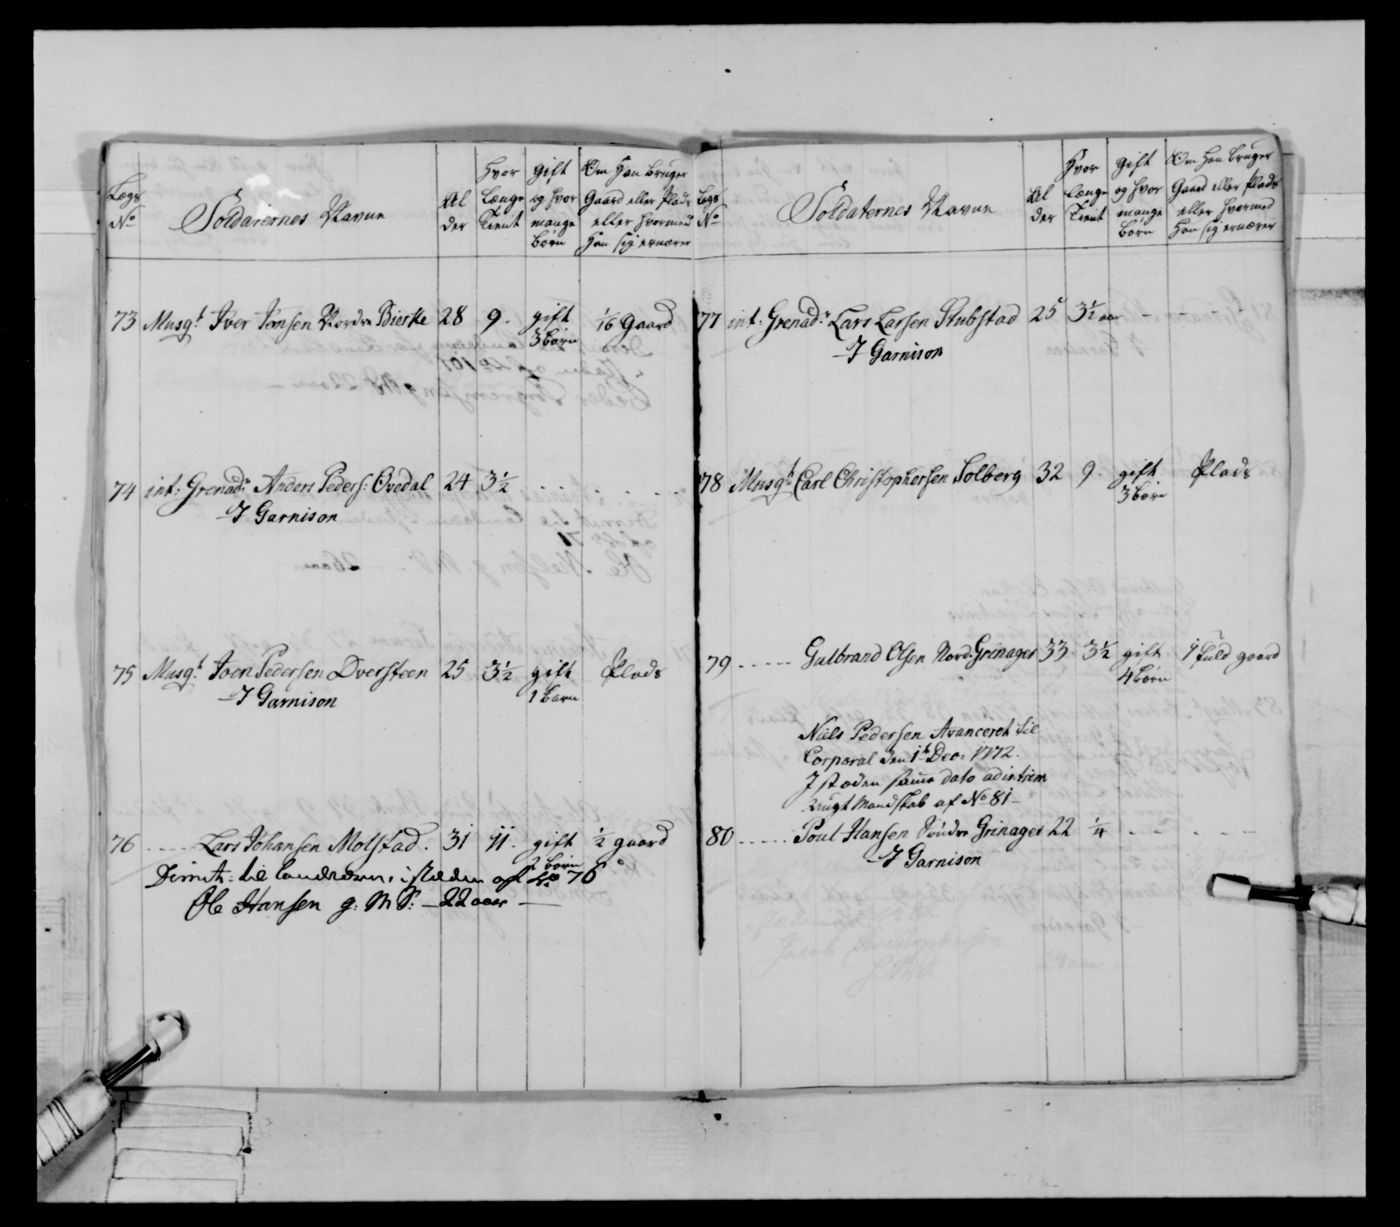 Legs No
Soldaternes Navne
Al der
Hvor Længe Tient
gift og hvor mange børn
Om Han bruger Gaard eller Plads eller hvormed Han sig ernærer
73 Musqt Iver Jonsen Nordre Bierke 28 9. gift 3 børn 1/6 Gaard
74 int: Grenadr Anders Peders: Ovedal 24 3½
I Garnison
75 Musqt Joen Pedersen Dversteen 25 3½ gift 1 barn Plads
I Garnison
76 ..... Lars Johansen Molstad. 31 11. gift 2 børn ½ gaard
Dimit: til landværn, i stæden af No 76
Ole Hansen g: M S: — 22 aar —
Legs No
Soldaternes Navne
Al der
Hvor Længe Tient
gift og hvor mange børn
Om Han bruger Gaard eller Plads eller hvormed Han sig ernærer
77 int: Grenadr Lars Larsen Stubstad 25 3½ aar - -
I Garnison
78 Musqt Carl Christophersen Solberg 32 9. gift 3 børn Plads
79 ..... Gulbrand Olsen Nord: Grinager 33 3½ gift 4 børn 1 fuld gaard
Niels Pedersen Avanceret til
Corporal den 1t Dec: 1772.
I stæden samme dato ad intrim
brugt Mandskab af No 81 —
80 ..... Poul Hansen Søndre Grinager 22 ¼ - - - -
I Garnison